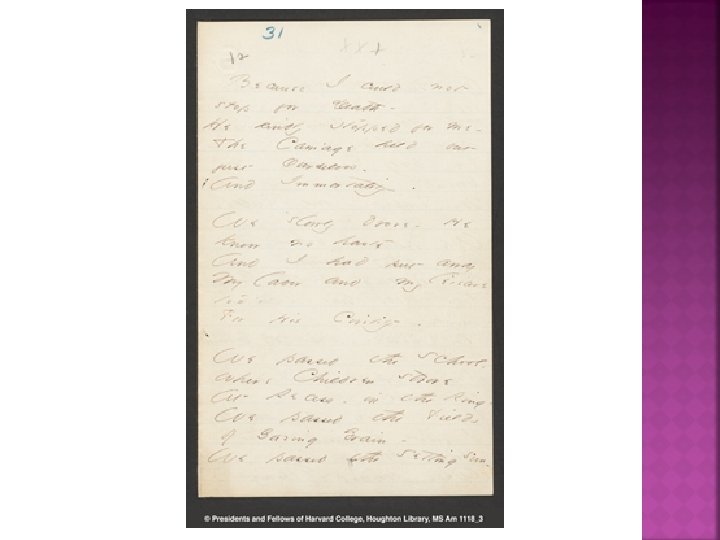 31
XXX
12
Because I could not
stop for Death -
He kindly stopped for me -
The Carriage held but
just Ourselves -
And Immortality .
We slowly drove - He
knew no haste
And I had put away
My labor and my leisure
too
For His Civility -
We passed the School,
where Children strove
At Recess - in the Ring -
We passed the Fields
of Gazing Grain -
We passed the Setting Sun -
© Presidents and Fellows of Harvard College, Houghton Library, MS Am 1118_3